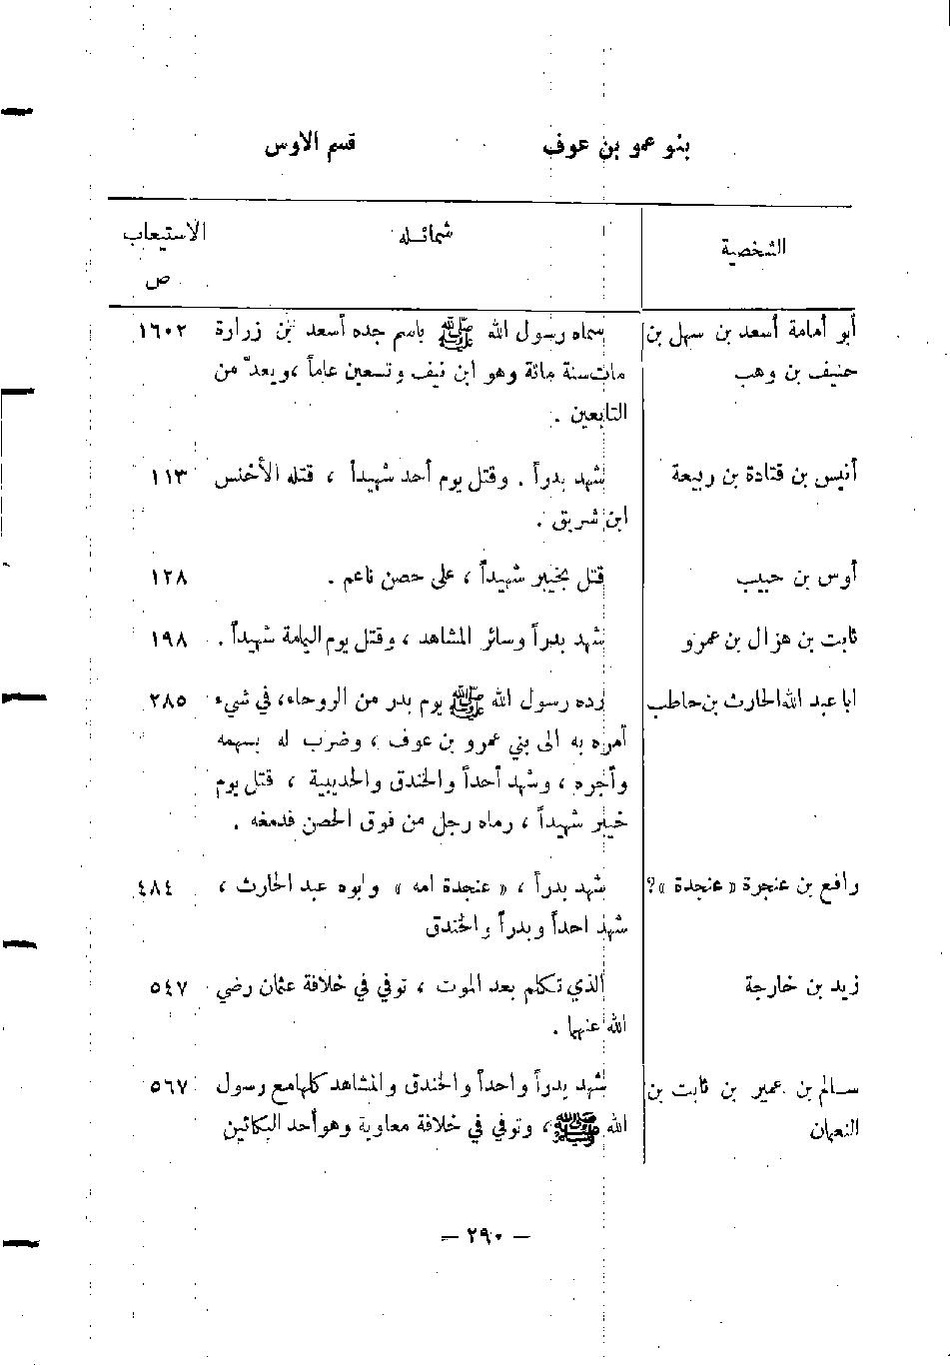 بنو عمو بن عوف قسم الاوس
الشخصية شمائله الاستيعاب
ص
أبو أمامة أسعد بن سهل بن سماه رسول الله ﷺ باسم جده أسعد بن زرارة ١٦٠٢
حنيف بن وهب مات سنة مائة وهو ابن نيف وتسعين عاماً ، ويعدّ من
التابعين .
أنيس بن قتادة بن ربيعة شهد بدراً . وقتل يوم أحد شهيداً ، قتله الأخنس ١١٣
ابن شريق .
أوس بن حبيب قتل بخيبر شهيداً ، على حصن ناعم . ١٢٨
ثابت بن هزال بن عمرو شهد بدراً وسائر المشاهد ، وقتل يوم اليمامة شهيداً . ١٩٨
ابا عبد الله الحارث بن حاطب رده رسول الله ﷺ يوم بدر من الروحاء، في شيء ٢٨٥
أمره به الى بني عمرو بن عوف ، وضرب له بسهمه
وأجره ، وشهد أحداً والخندق والحديبية ، قتل يوم
خيبر شهيداً ، رماه رجل من فوق الحصن فدمغه .
رافع بن عنجرة « عنجدة »؟ شهد بدراً ، « عنجدة امه » وابوه عبد الحارث ، ٤٨٤
شهد احداً وبدراً والخندق
زيد بن خارجة الذي تكلم بعد الموت ، توفي في خلافة عثمان رضي ٥٤٧
الله عنهما .
سالم بن عمير بن ثابت بن شهد بدراً واحداً والخندق والمشاهد كلها مع رسول ٥٦٧
النعمان الله ﷺ ، وتوفي في خلافة معاوية وهو أحد البكائين
— ٢٩٠ —